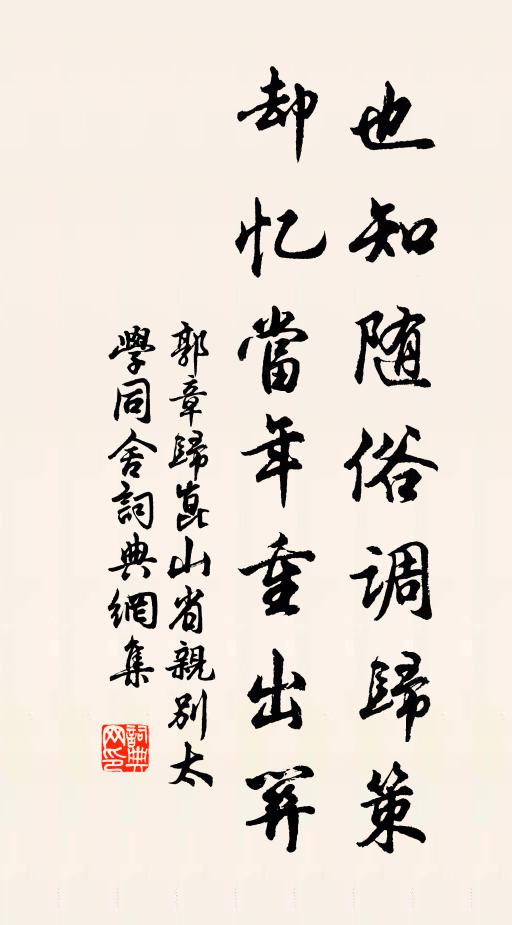 也知随俗调歸策
却忆當年重出關
郭章歸崑山省親別太
學同舍詞典網集
詞典
网印